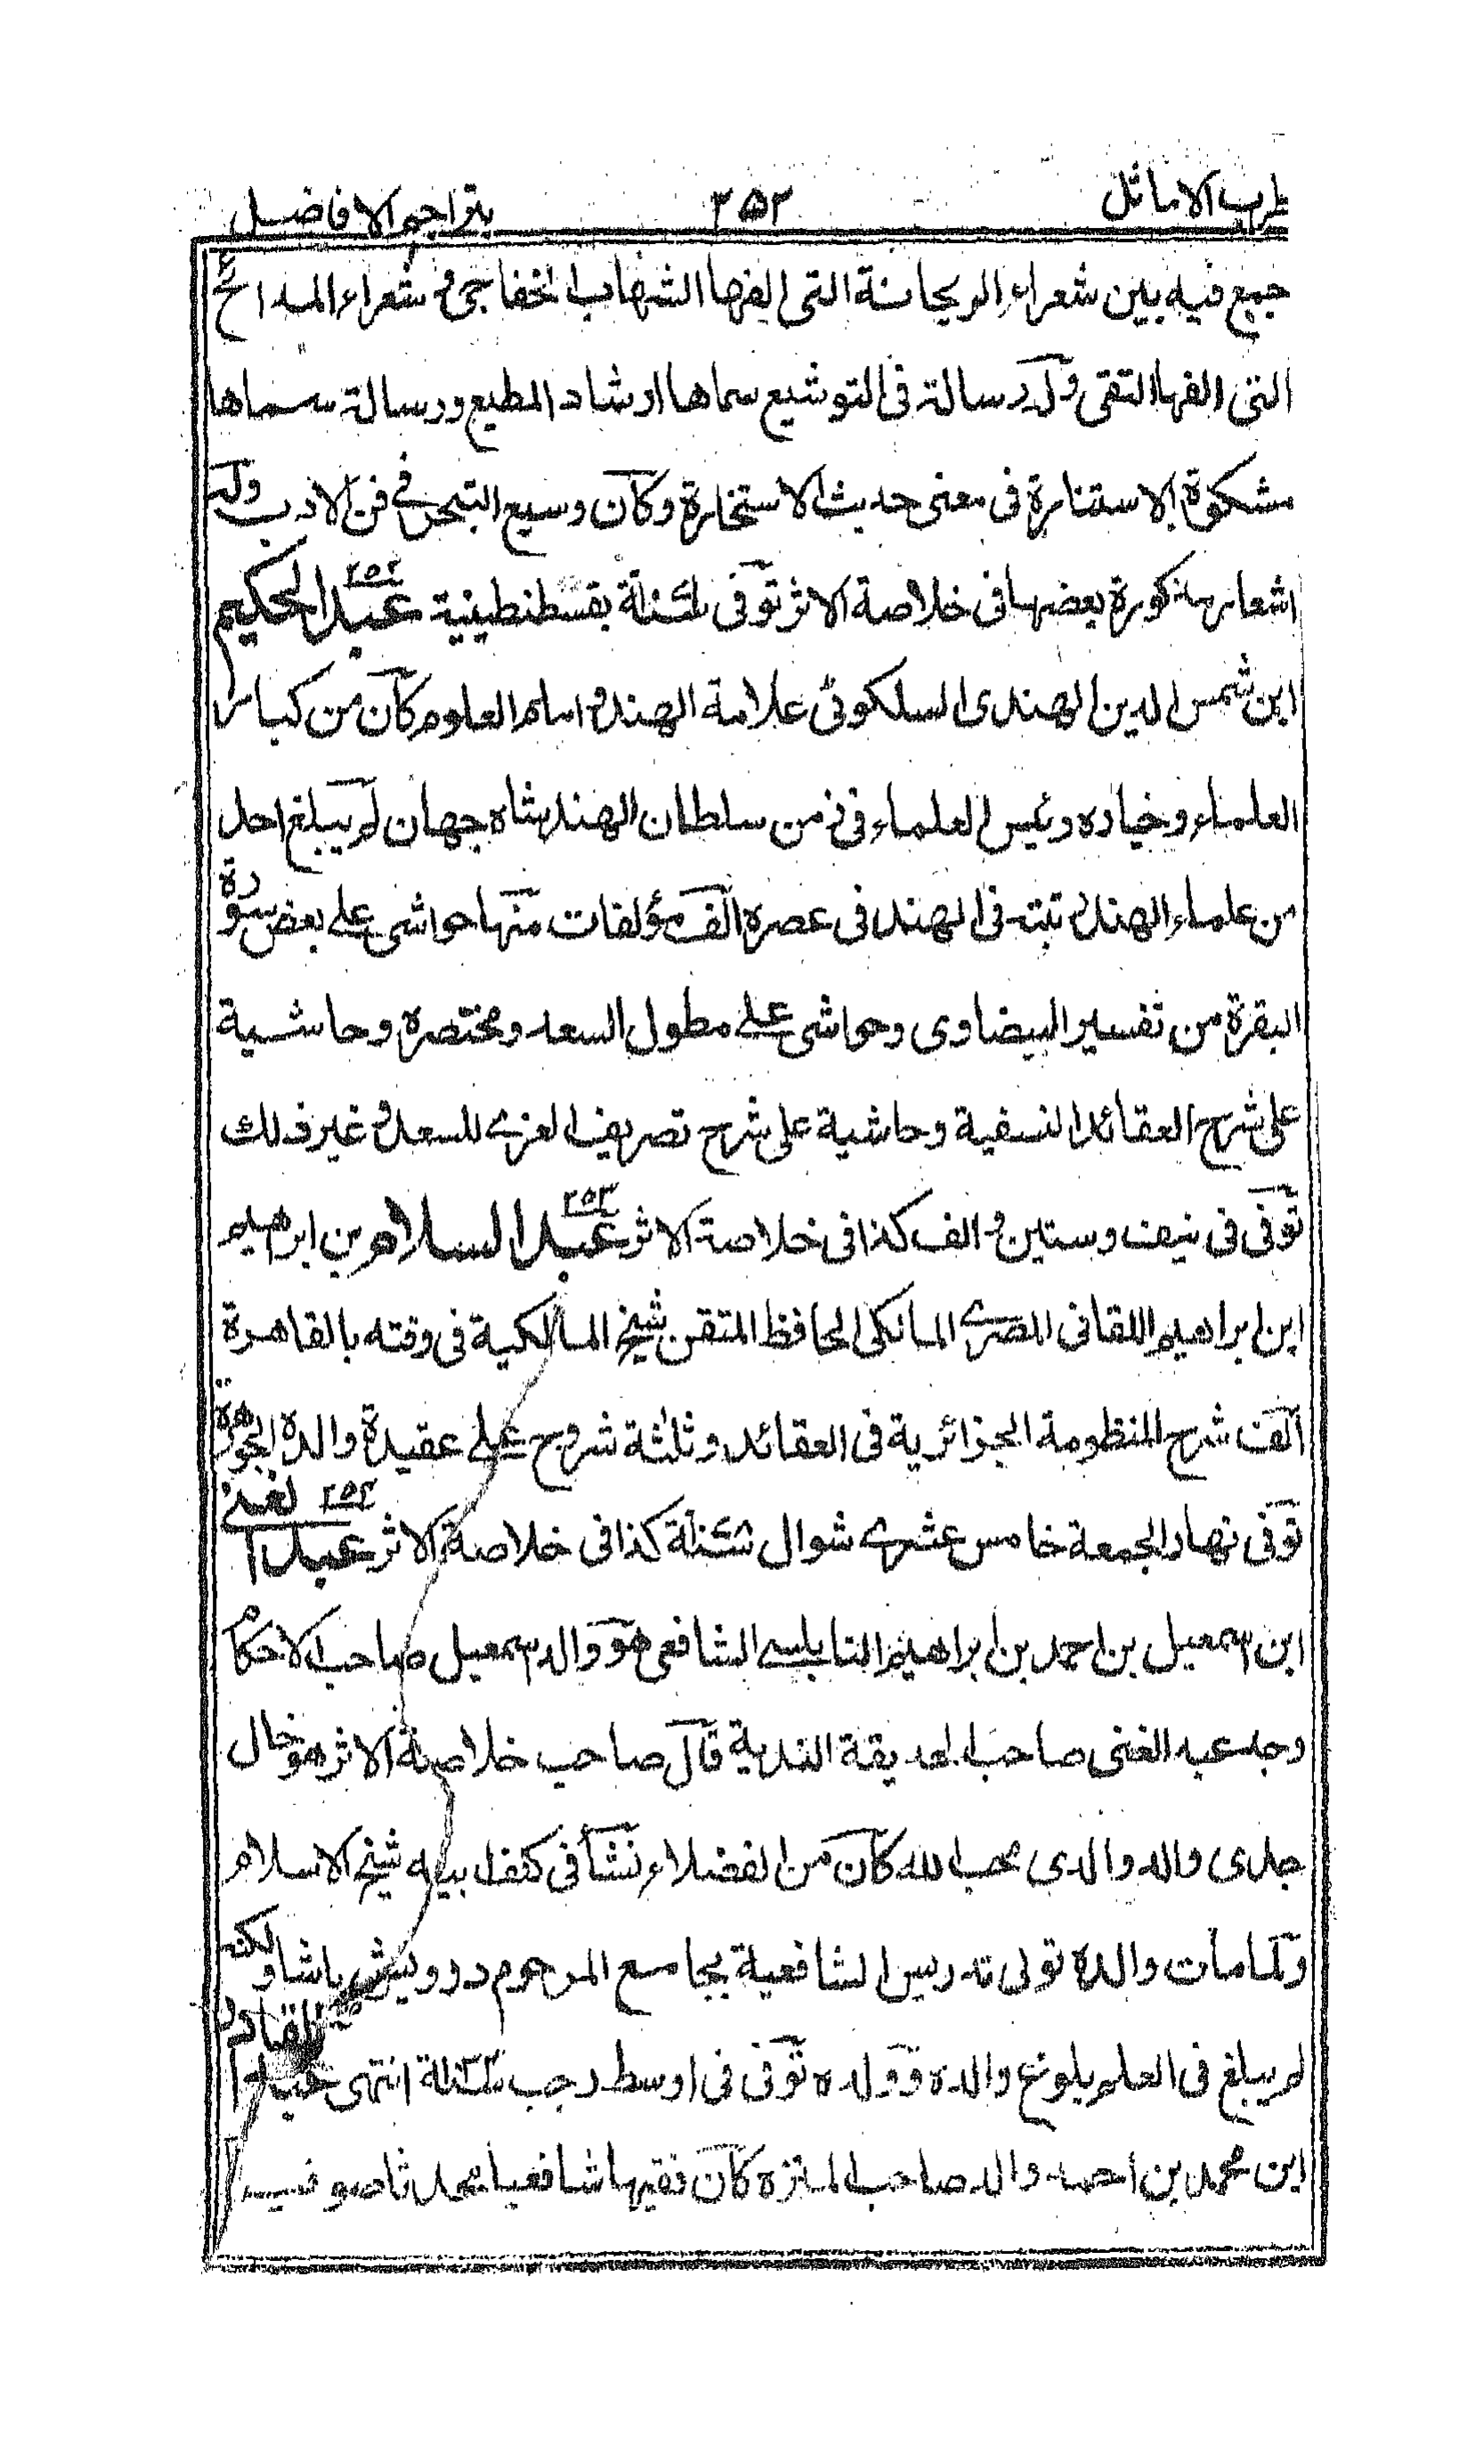 طرب الاماثل ٢٥٢ بتراجم الافاضل
جمع فيه بين شعراء الريحانة التى الفها الشهاب الخفاجى و شعراء المدائح
التى الفها التقى وله رسالة فى التوشيع سماها ارشاد المطيع ورسالة سماها
مشكوة الاستنارة فى معنى حديث الاستخارة وكان وسيع التبحر فى فن الادب وله
اشعار مذكورة بعضها فى خلاصة الاثر توفى بقسطنطينية ٢٥٢ عبد الحكيم
ابن شمس الدين الهندى السلكوتى علامة الهند و امام العلوم كان من كبار
العلماء وخياره رئيس العلماء فى زمن سلطان الهند شاه جهان لم يبلغ احد
من علماء الهند رتبته فى الهند فى عصره الف مؤلفات منها حواشى على بعض سورة
البقرة من تفسير البيضاوى وحواشى على مطول السعد ومختصره وحاشية
على شرح العقائد النسفية وحاشية على شرح تصريف العزى للسعد و غير ذلك
توفى فى نيف وستين و الف كذا فى خلاصة الاثر ٢٥٣ عبد السلام بن ابرهيم
ابن ابراهيم اللقانى المصرى المالكى الحافظ المتقن شيخ المالكية فى وقته بالقاهرة
الف شرح المنظومة الجزائرية فى العقائد وثلثة شروح على عقيدة والده الجوهرة
توفى نهار الجمعة خامس عشرى شوال كذا فى خلاصة الاثر عبد الغنى
ابن اسمعيل بن احمد بن ابراهيم النابلسى الشافعى هو والد اسمعيل صاحب الاحكام
وجد عبد الغنى صاحب الحديقة الندية قال صاحب خلاصة الاثر هو خال
جدى والد والدى محب الله كان من الفضلاء نشأ فى كنف ابيه شيخ الاسلام
ولما مات والده تولى تدريس الشافعية بجامع المرحوم درويش باشا ولكنه
لم يبلغ فى العلم بلوغ والده وولده توفى فى اوسط رجب انتهى عبد القادر
ابن محمد بن احمد والد صاحب المنتزه كان فقيها شافعيا محدثا صوفيا